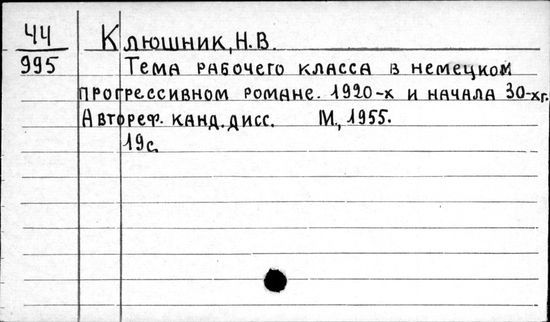 44
995
Клюшник, Н.В.
Тема рабочего класса в немецком
прогрессивном романе. 1920-х и начала 30-хг.
Автореф. канд. дисс. М., 1955.
19с.